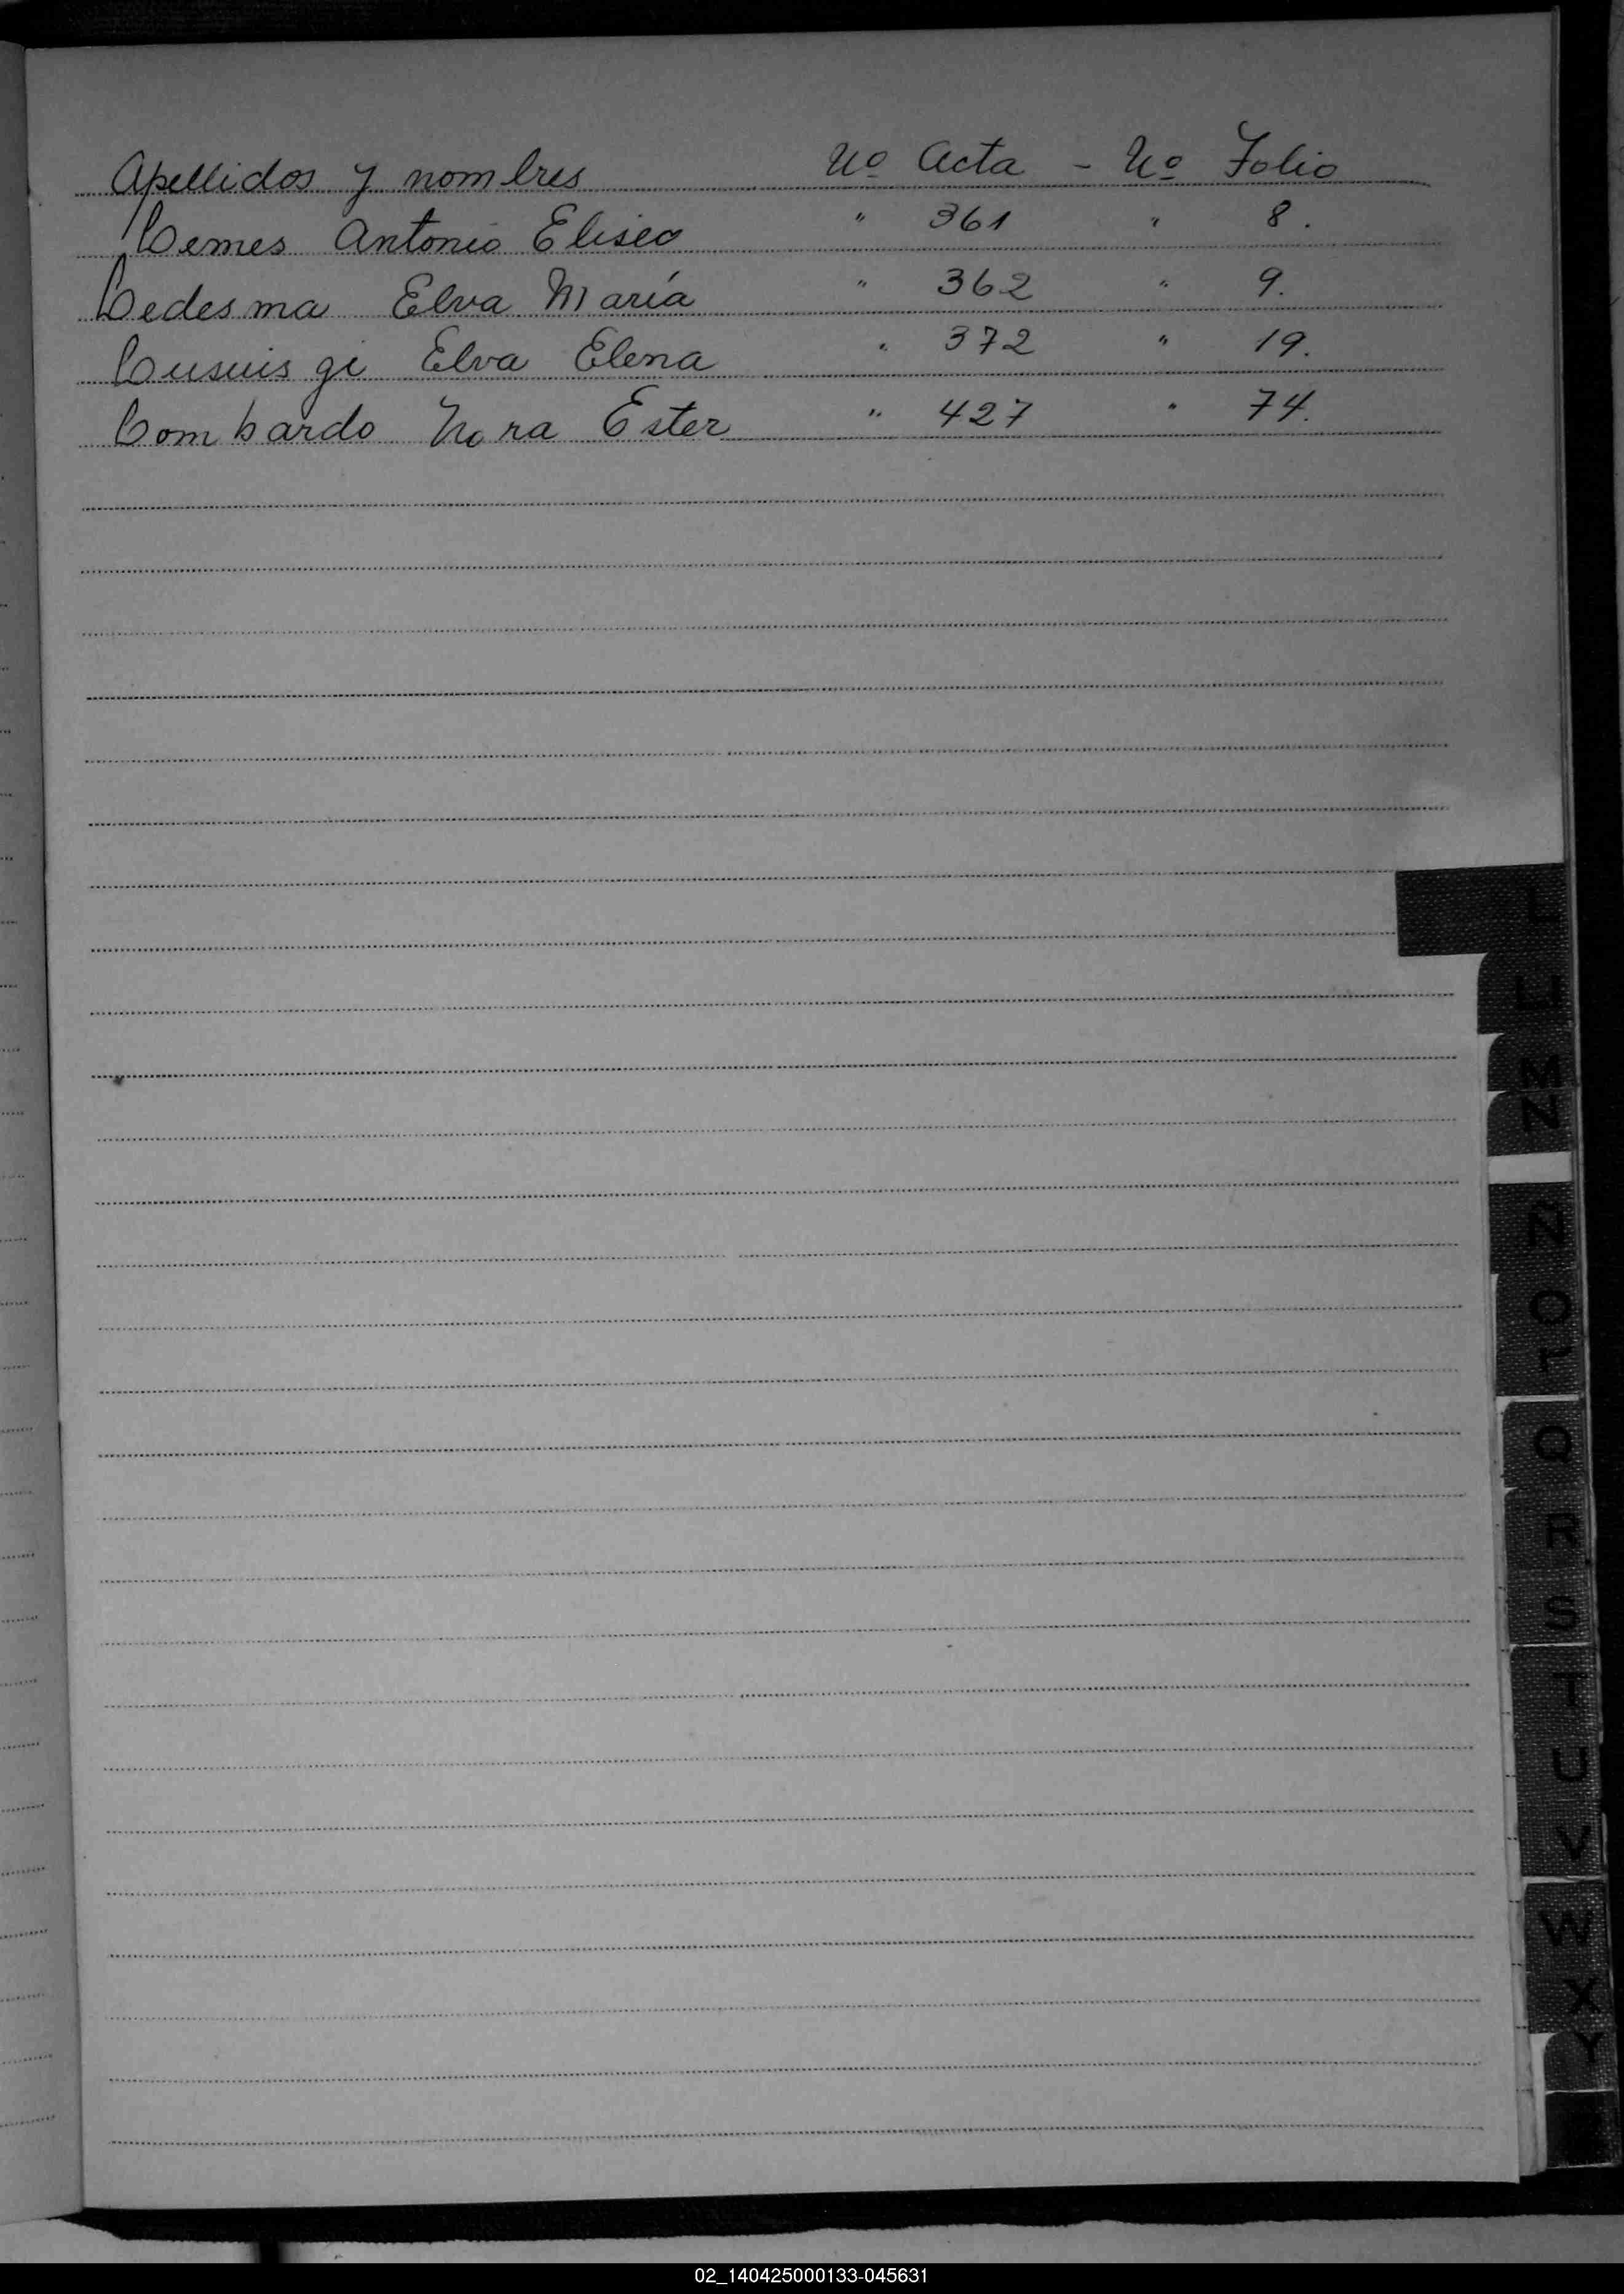 Apellidos y nombres Nº Acta - Nº Folio
Lemes Antonio Eliseo " 361 " 8.
Ledesma Elva María " 362 " 9.
Elva Elena " 372 " 19.
Lombardo Nora Ester " 427 " 74.
L
LL
M
N
Ñ
O
P
Q
R
S
T
U
V
W
X
Y
02_140425000133-045631